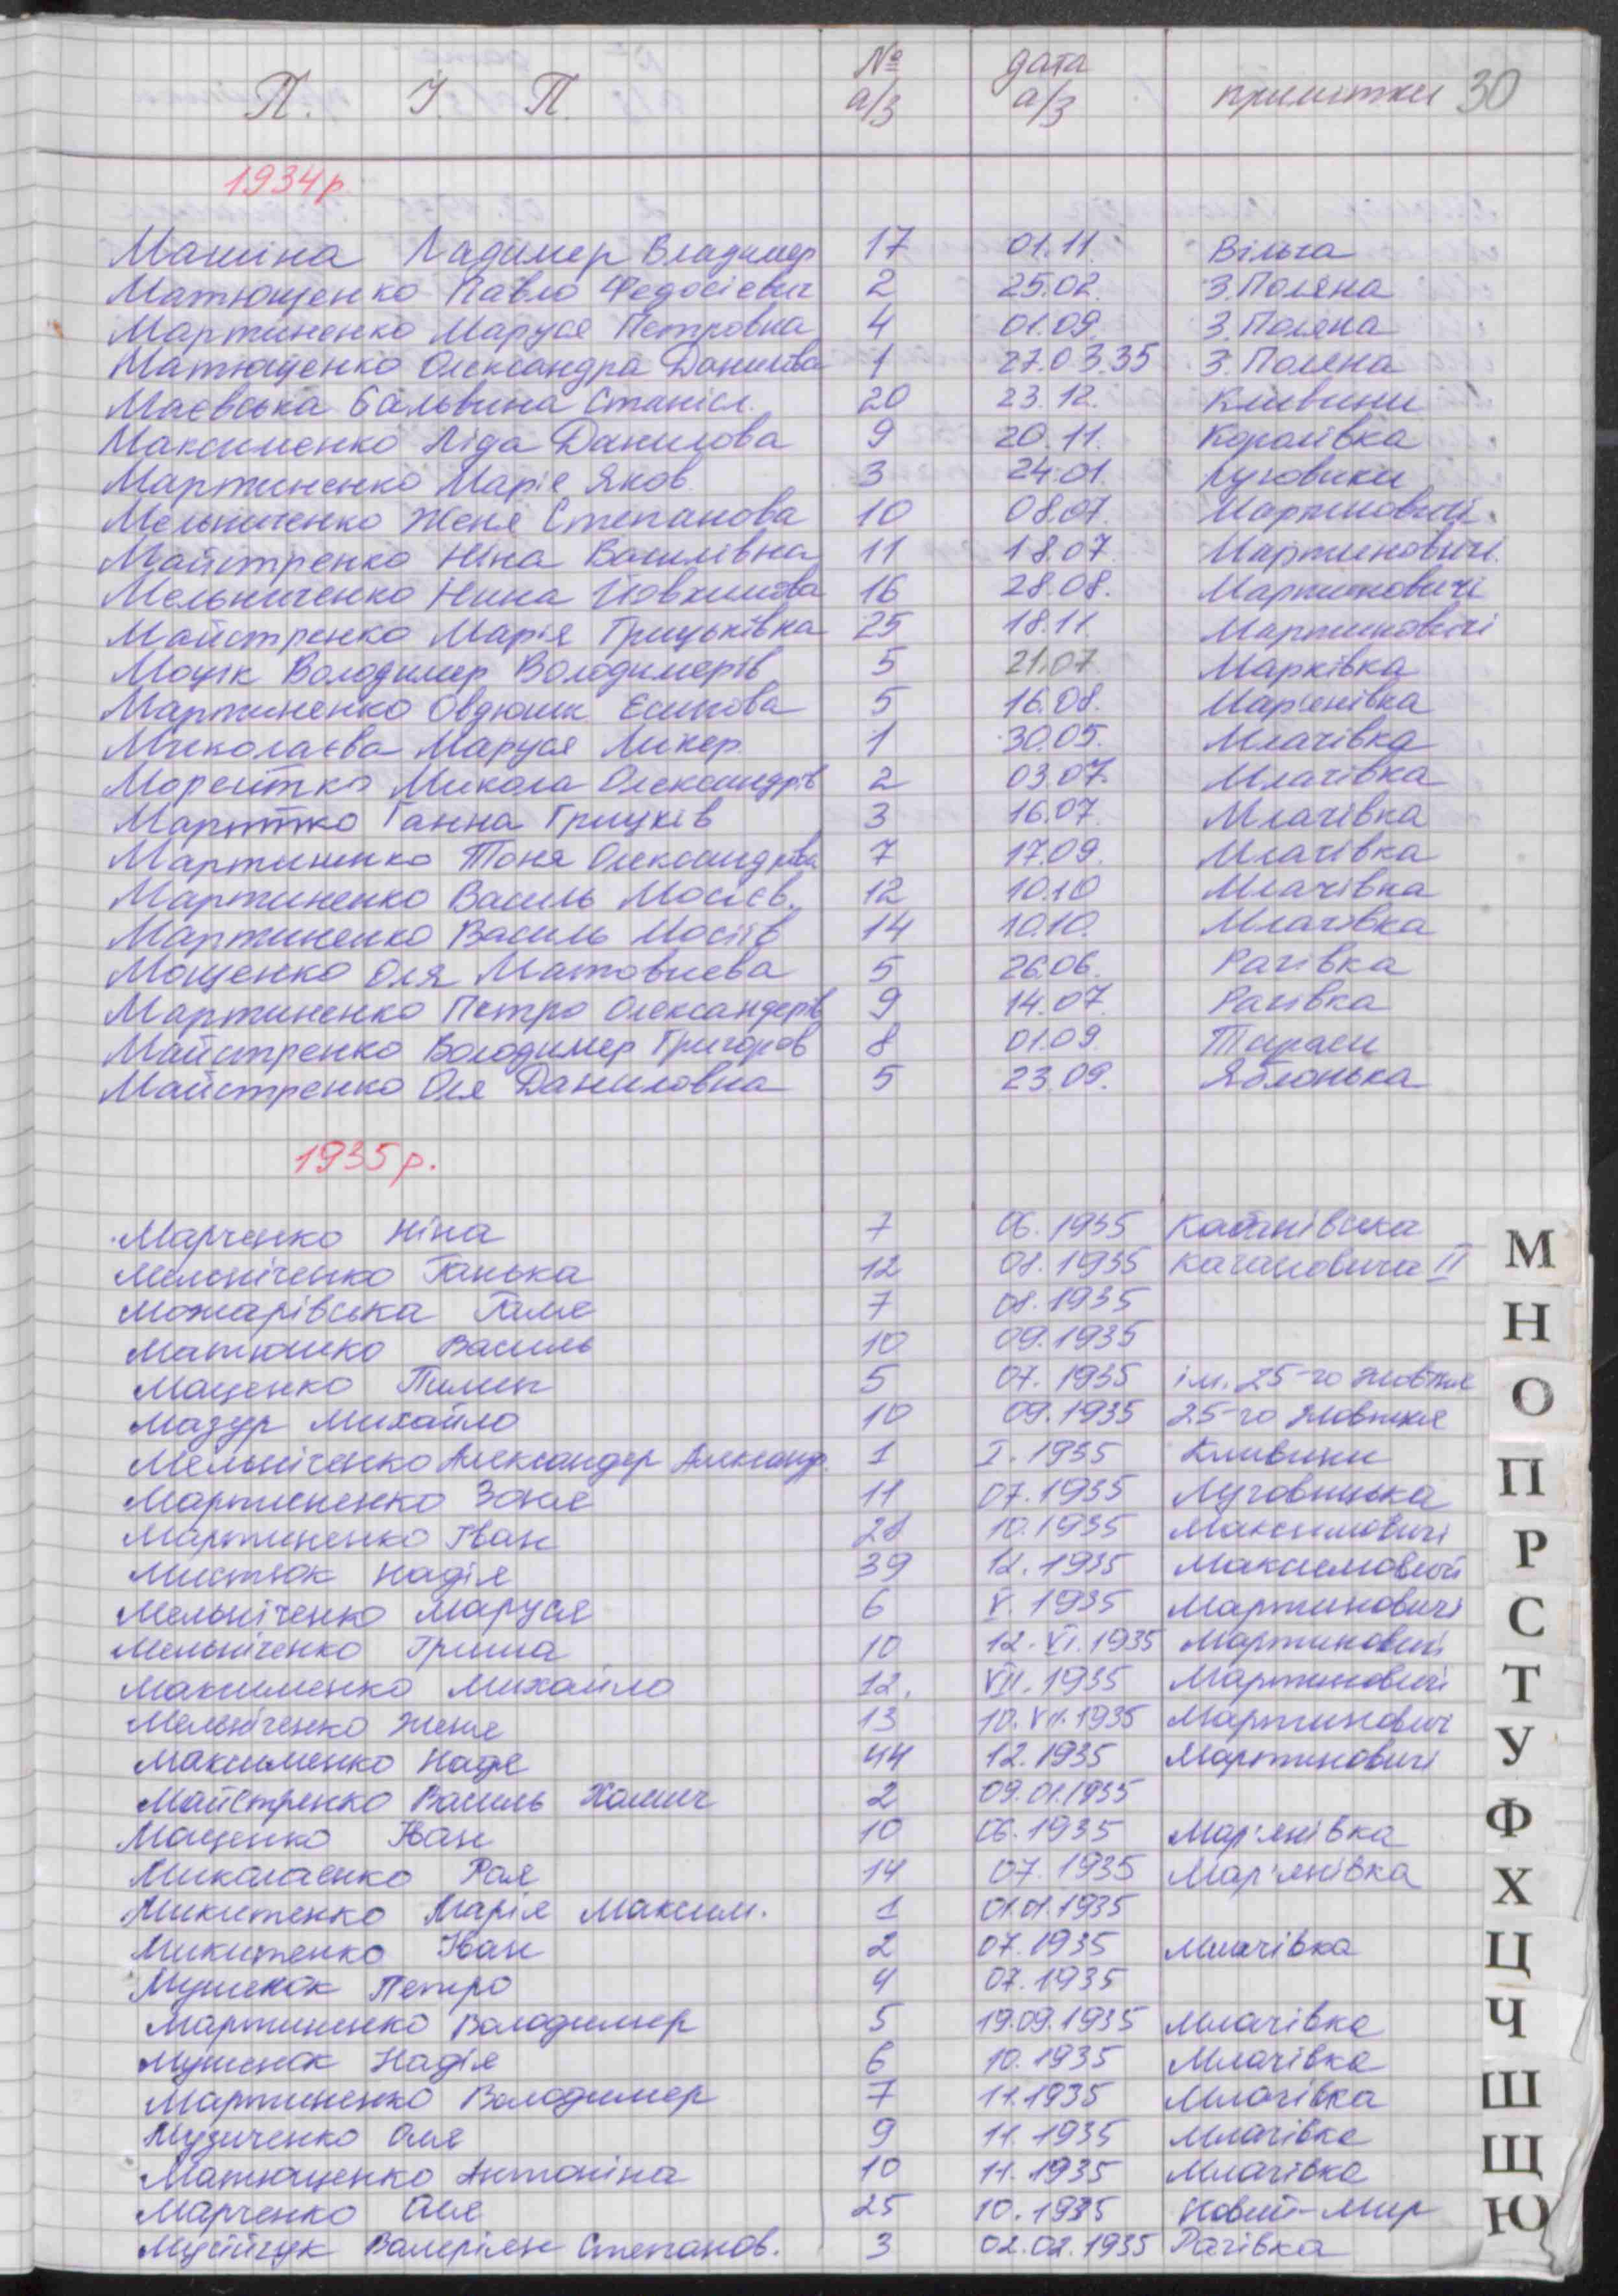 П. І. П. № а/з дата а/з примітки 30
1934р
Машіна Ладимер Владимер 17 01.11. Вільча
Матющенко Павло Федосієвич 2 25.02. З.Поляна
Мартиненко Маруся Петровна 4 01.09. З.Поляна
Матющенко Олександра Данилова 1 27.03.35 З.Поляна
Маєвська Бальвина Станісл. 20 23.12. Кливини
Максименко Ліда Данилова 9 20.11. Королівка
Мартиненко Марія Яков. 3 24.01. Луговики
Мельниченко Женя Степанова 10 08.07. Мартиновичі
Майстренко Ніна Василівна 11 18.07. Мартиновичі
Мельниченко Нина Йовхимова 16 28.08. Мартиновичі
Майстренко Марія Грицьківна 25 18.11. Мартиновичі
Моцік Володимер Володимерів 5 21.07 Марківка
Мартиненко Овдюшк Єсипова 5 16.08. Мар'янівка
Миколаєва Маруся Микер. 1 30.05. Млачівка
Микола Олександрів 2 03.07. Млачівка
Ганна Грицків 3 16.07. Млачівка
Мартиненко Тоня Олександрова 7 17.09. Млачівка
Мартиненко Василь Мосієв. 12 10.10 Млачівка
Мартиненко Василь Мосіїв 14 10.10. Млачівка
Мощенко Оля Матовиєва 5 26.06. Рагівка
Мартиненко Петро Олександерів 9 14.07. Рагівка
Майстренко Володимер Григоров 8 01.09. Тараси
Майстренко Оля Даниловна 5 23.09. Яблонька
1935р.
Марченко Ніна 7 06.1935
Мельніченко Ганька 12 08.1935 Кагановича II
Можарівська Галя 7 08.1935
Матюшко Василь 10 09.1935
Маценко Пилип 5 07.1935 ім. 25-го Жовтня
Мазур Михайло 10 09.1935 25-го Жовтня
Мельніченко Александер Александ. 1 I.1935 Кливини
Мартиненко Зоня 11 07.1935 Луговицька
Мартиненко Іван 28 10.1935 Максимовичі
Мистюк Надія 39 12.1935 Максимовичі
Мельніченко Маруся 6 V.1935 Мартиновичі
Мельніченко Гриша 10 12.VI.1935 Мартиновичі
Максименко Михайло 12. VII.1935 Мартиновичі
Мельніченко Женя 13 10.VII.1935 Мартиновичі
Максименко Надя 44 12.1935 Мартиновичі
Майстренко Василь Хомич 2 09.01.1935
Маценко Іван 10 06.1935 Мар'янівка
Миколаєнко Рая 14 07.1935 Мар'янівка
Микитенко Марія Максим. 1 01.01.1935
Микитенко Іван 2 07.1935 Млачівка
Мушенок Петро 4 07.1935
Мартиненко Володимер 5 19.09.1935 Млачівка
Мушенок Надія 6 10.1935 Млачівка
Мартиненко Володимер 7 11.1935 Млачівка
Музиченко Оля 9 11.1935 Млачівка
Матющенко Антоніна 10 11.1935 Млачівка
Марченко Оля 25 10.1935 Новий-Мир
Валеріян Степанов. 3 02.02.1935 Рагівка
М
Н
О
П
Р
С
Т
У
Ф
Х
Ц
Ч
Ш
Щ
Ю